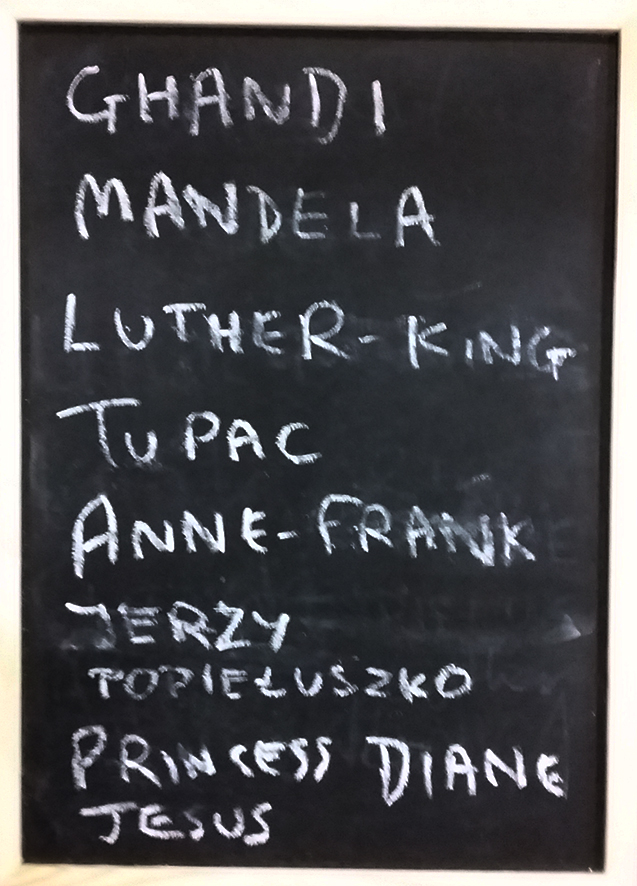 GHANDI
MANDELA
LUTHER-KING
TUPAC
ANNE-FRANK
JERZY
POPIEŁUSZKO
PRINCESS DIANE
JESUS